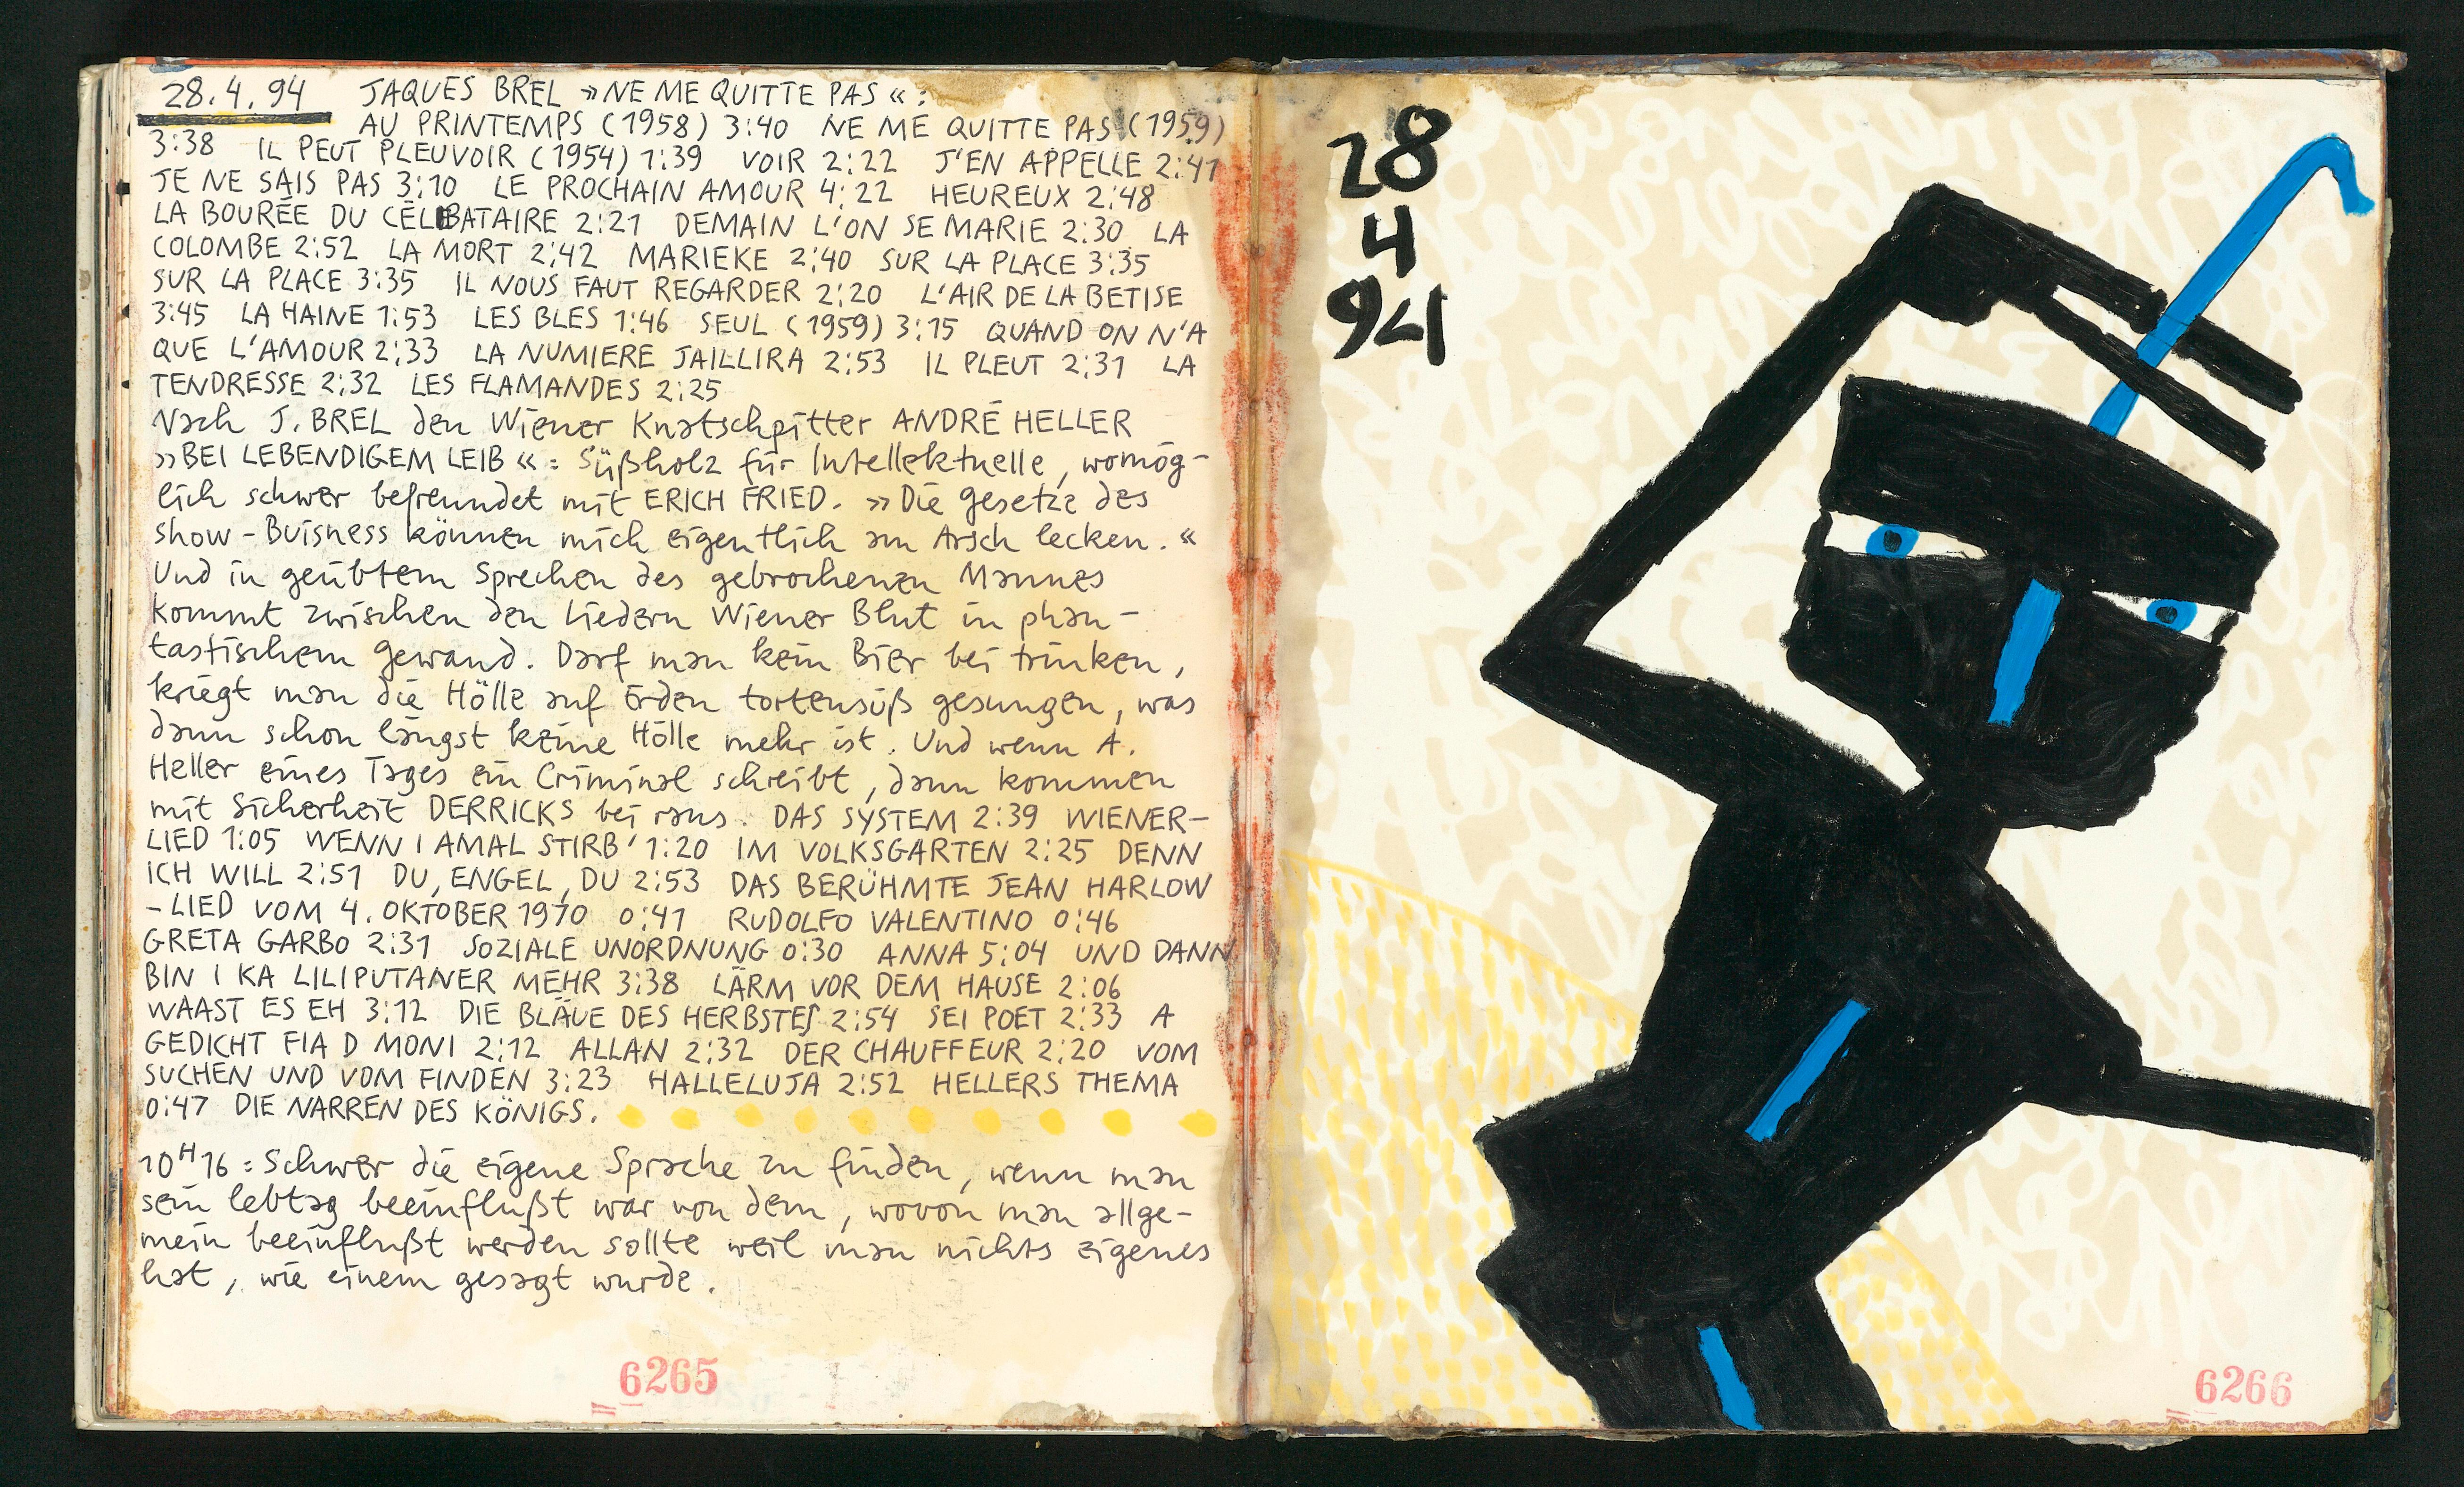 28.4.94 JAQUES BREL »NE ME QUITTE PAS«:
AU PRINTEMPS (1958) 3:40 NE ME QUITTE PAS (1959)
3:38 IL PEUT PLEUVOIR (1954) 1:39 VOIR 2:22 J'EN APPELLE 2:41
JE NE SAIS PAS 3:10 LE PROCHAIN AMOUR 4:22 HEUREUX 2:48
LA BOURÉE DU CÉLIBATAIRE 2:21 DEMAIN L'ON SE MARIE 2:30 LA
COLOMBE 2:52 LA MORT 2:42 MARIEKE 2:40 SUR LA PLACE 3:35
SUR LA PLACE 3:35 IL NOUS FAUT REGARDER 2:20 L'AIR DE LA BETISE
3:45 LA HAINE 1:53 LES BLES 1:46 SEUL (1959) 3:15 QUAND ON N'A
QUE L'AMOUR 2:33 LA NUMIERE JAILLIRA 2:53 IL PLEUT 2:31 LA
TENDRESSE 2:32 LES FLAMANDES 2:25
Nach J. BREL den Wiener Knatschgitter ANDRÉ HELLER
»BEI LEBENDIGEM LEIB«: Süßholz für Intellektuelle, womög-
lich schwer befreundet mit ERICH FRIED. »Die Gesetze des
Show-Buisness können mich eigentlich am Arsch lecken.«
Und in geübtem Sprechen des gebrochenen Mannes
kommt zwischen den Liedern Wiener Blut in phan-
tastischem Gewand. Darf man kein Bier bei trinken,
kriegt man die Hölle auf Erden tortensüß gesungen, was
dann schon längst keine Hölle mehr ist. Und wenn A.
Heller eines Tages ein Criminal schreibt, dann kommen
mit Sicherheit DERRICKS bei raus. DAS SYSTEM 2:39 WIENER-
LIED 1:05 WENN I AMAL STIRB' 1:20 IM VOLKSGARTEN 2:25 DENN
ICH WILL 2:51 DU, ENGEL, DU 2:53 DAS BERÜHMTE JEAN HARLOW
-LIED VOM 4. OKTOBER 1970 0:41 RUDOLFO VALENTINO 0:46
GRETA GARBO 2:31 SOZIALE UNORDNUNG 0:30 ANNA 5:04 UND DANN
BIN I KA LILIPUTANER MEHR 3:38 LÄRM VOR DEM HAUSE 2:06
WAAST ES EH 3:12 DIE BLÄUE DES HERBSTES 2:54 SEI POET 2:33 A
GEDICHT FIA D MONI 2:12 ALLAN 2:32 DER CHAUFFEUR 2:20 VOM
SUCHEN UND VOM FINDEN 3:23 HALLELUJA 2:52 HELLERS THEMA
0:47 DIE NARREN DES KÖNIGS.
10H16: Schwer die eigene Sprache zu finden, wenn man
sein Lebtag beeinflußt war von dem, wovon man allge-
mein beeinflußt werden sollte weil man nichts eigenes
hat, wie einem gesagt wurde.
6265
28
4
94
6266